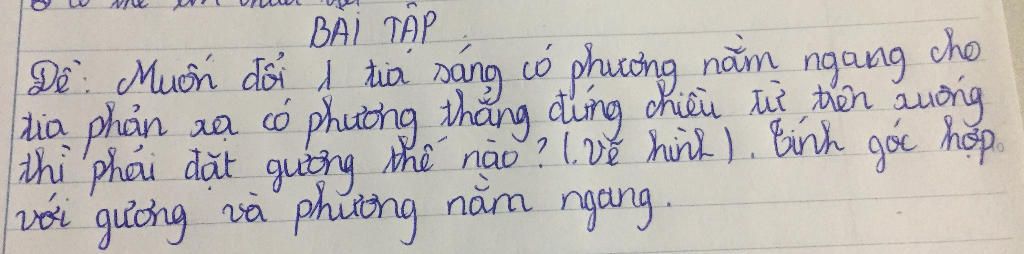 BÀI TẬP.
Đề: Muốn đổi 1 tia sáng có phương nằm ngang cho
tia phản xạ có phương thẳng đứng chiều từ trên xuống
thì phải đặt gương thế nào? (vẽ hình). Tính góc hợp
với gương và phương nằm ngang.